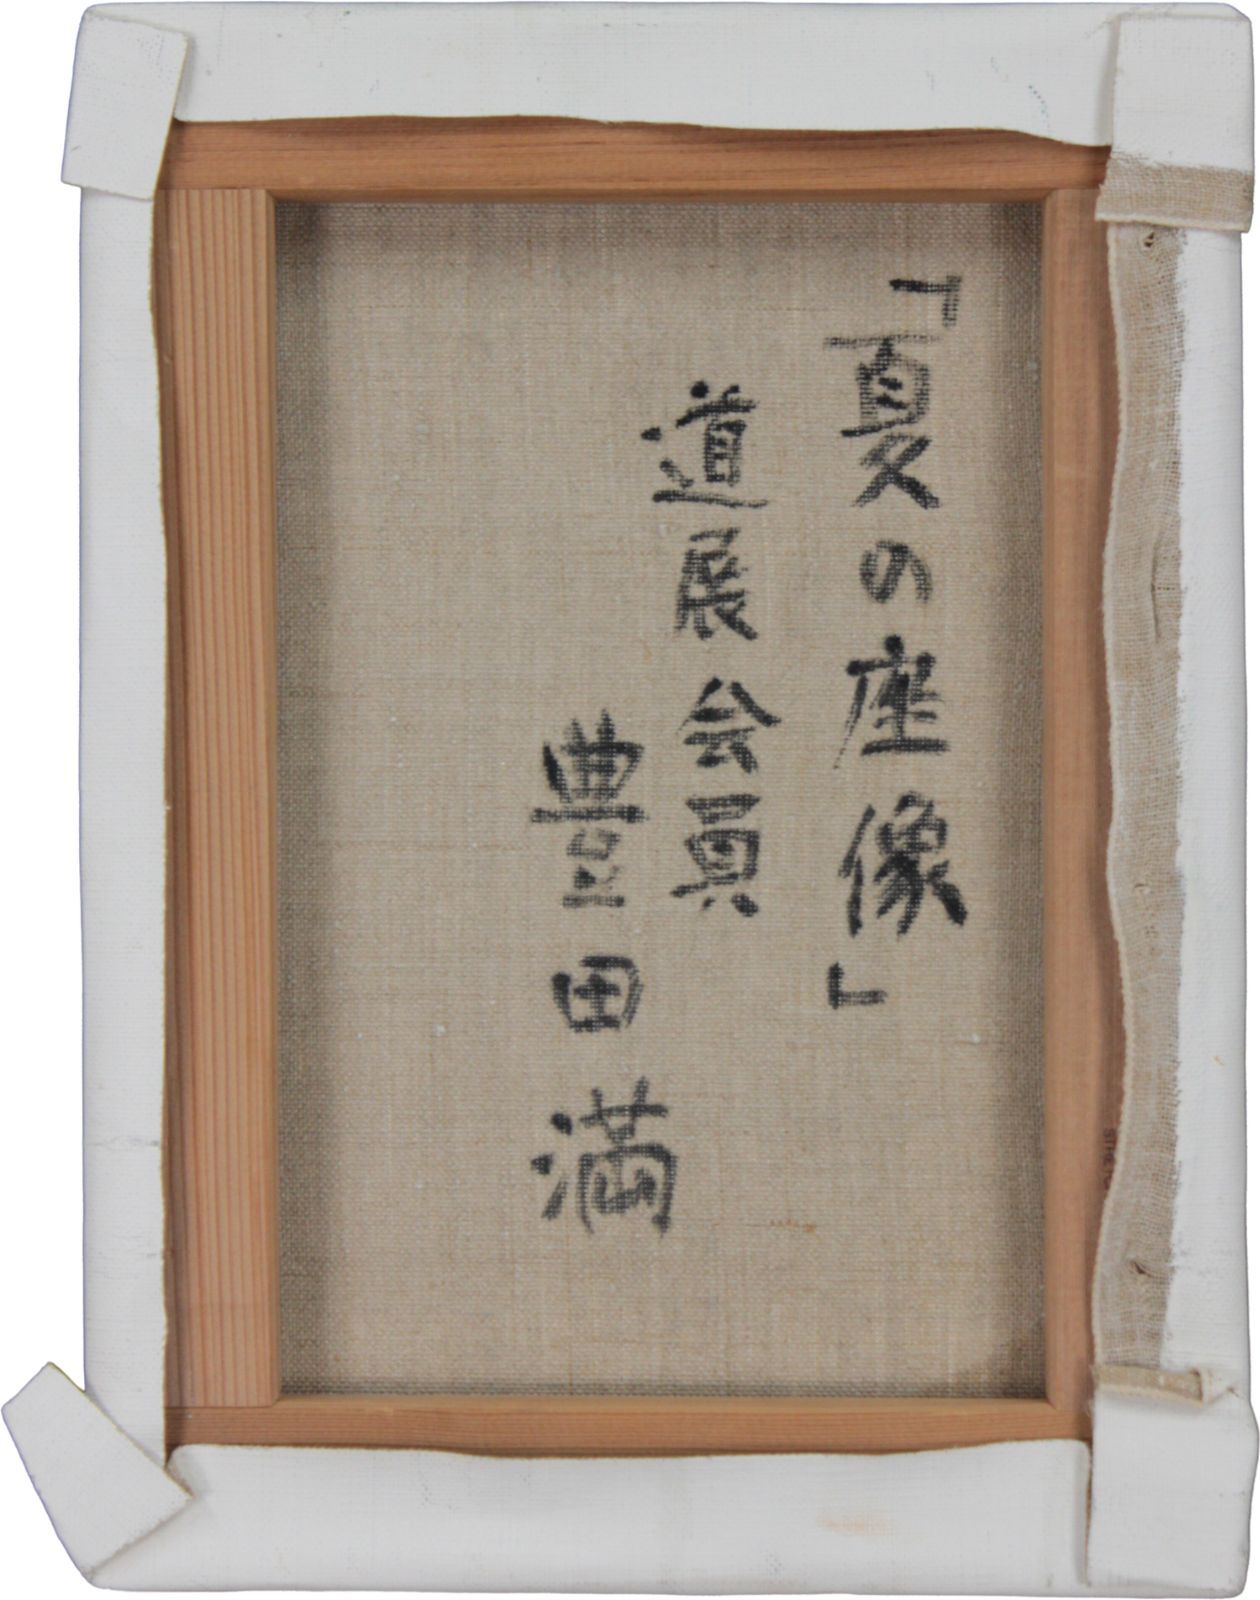 「夏の座像」
道展会員
豊田満